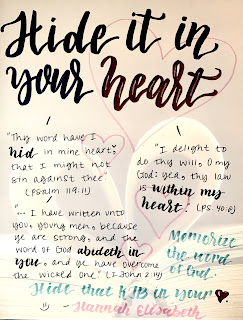 Hide it in
your heart
"Thy word have I
hid in mine heart,
that I might not
sin against thee"
(Psalm 119:11)
"I delight to
do thy will, O my
God: yea, thy law
is within my
heart. (PS. 40:8)
"... I have written unto
you, young men, because
ye are strong, and the
word of God abideth in
you, and ye have overcome
the wicked one" (I John 2:14)
Memorize
the word
of God.
Hide that KJB in your
Hannah Elisabeth